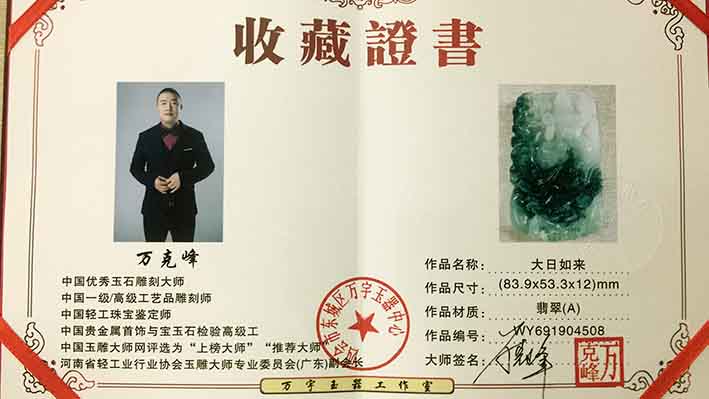 收藏證書
万克峰
中国优秀玉石雕刻大师
中国一级/高级工艺品雕刻师
中国轻工珠宝鉴定师
中国贵金属首饰与宝玉石检验高级工
中国玉雕大师网评选为“上榜大师”“推荐大师”
河南省轻工业行业协会玉雕大师专业委员会(广东)副会长
作品名称: 大日如来
作品尺寸: (83.9x53.3x12)mm
作品材质: 翡翠(A)
作品编号: WY691904508
大师签名:
万克峰
市东城区万字玉器中心
万字玉器工作室